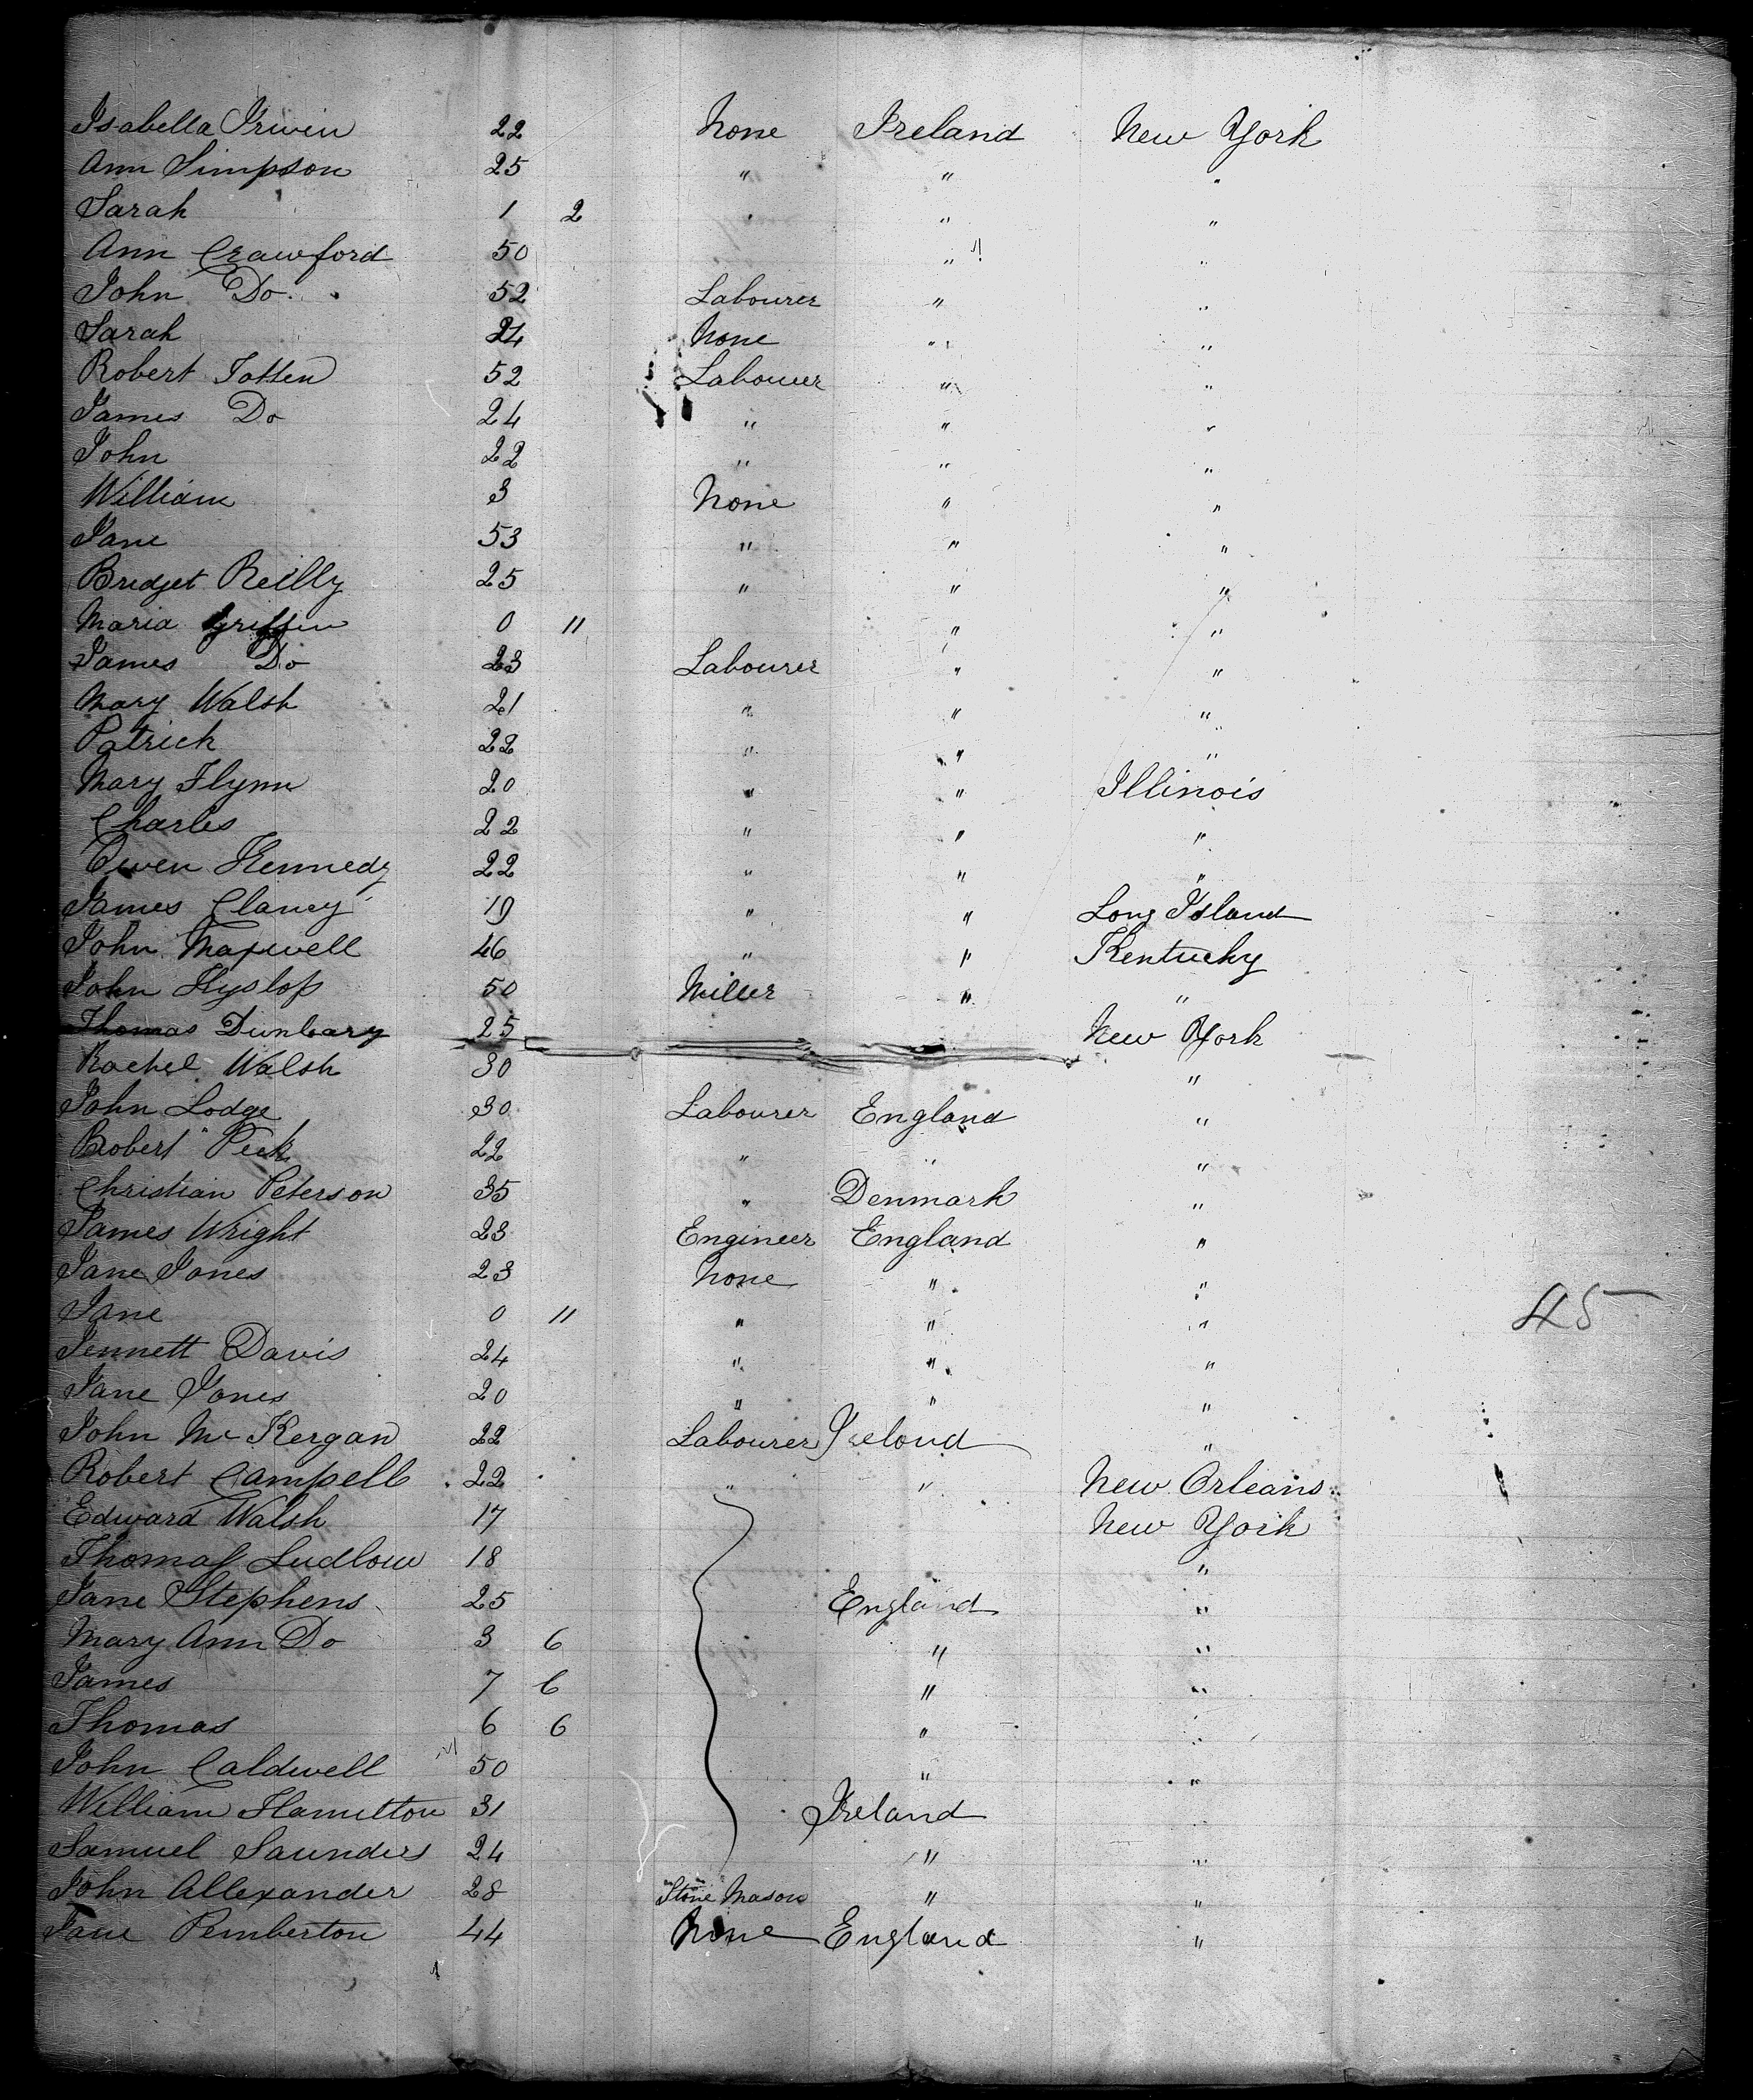 Isabella Irwin 22 None Ireland New York
Ann Simpson 25 " " "
Sarah 1 2 " " "
Ann Crawford 50 " "
John Do 52 Labourer " "
Sarah 24 None " "
Robert Totten 52 Labourer " "
James Do 24 " " "
John 22 " " "
William 3 None " "
Jane 53 " " "
Bridget Reilly 25 " " "
Maria Griffin 0 11 " "
James Do 23 Labourer " "
Mary Walsh 21 " " "
Patrick 22 " " "
Mary Flynn 20 " " Illinois
Charles 22 " " "
Owen Kennedy 22 " " "
James Clancy 19 " " Long Island
John Maxwell 46 " " Kentucky
John Hyslop 50 Miller " "
Thomas Dunleavy 25 New York
Rachel Walsh 30 "
John Lodge 30 Labourer England "
Robert Peek 22 " " "
Christian Peterson 35 " Denmark "
James Wright 23 Engineer England "
Jane Jones 23 None " "
Jane 0 11 " " "
45
Jennett Davis 24 " " "
Jane Jones 20 " " "
John McKergan 22 Labourer Ireland "
Robert Campell 22 " " New Orleans
Edward Walsh 17 New York
Thomas Ludlow 18 "
Jane Stephens 25 England "
Mary Ann Do 3 6 " "
James 7 6 " "
Thomas 6 6 " "
John Caldwell 50 " "
William Hamilton 31 Ireland "
Samuel Saunders 24 " "
John Allexander 28 Stone Mason " "
Jane Pemberton 44 None England "